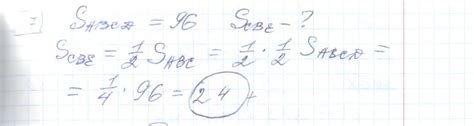 7) S_ABCD = 96 S_CBE - ?
S_CBE = 1/2 S_ABC = 1/2 · 1/2 S_ABCD =
= 1/4 · 96 = 24 +